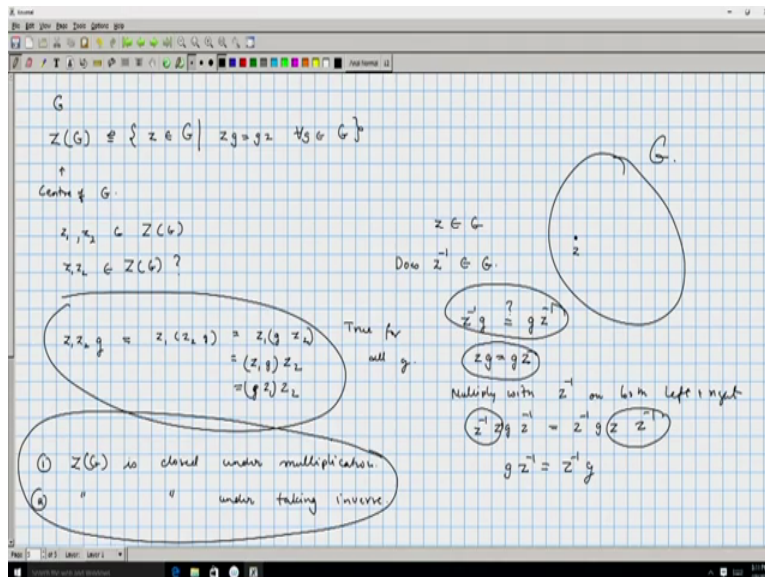 Xournal
File Edit View Page Tools Options Help
G
Z(G) = { z ∈ G | zg = gz ∀g ∈ G }
↑
Centre of G.
z₁, z₂ ∈ Z(G)
z₁z₂ ∈ Z(G) ?
z₁z₂ g = z₁(z₂ g) = z₁(g z₂)
= (z₁ g) z₂
= (g z₁) z₂
True for
all g.
① Z(G) is closed under multiplication.
② " " under taking inverse.
G.
z
z ∈ G
Does z⁻¹ ∈ G.
z⁻¹g ?= g z⁻¹
zg = gz
Multiply with z⁻¹ on both left & right
z⁻¹ z g z⁻¹ = z⁻¹ g z z⁻¹
g z⁻¹ = z⁻¹ g
Page 5 of 5 Layer: Layer 1